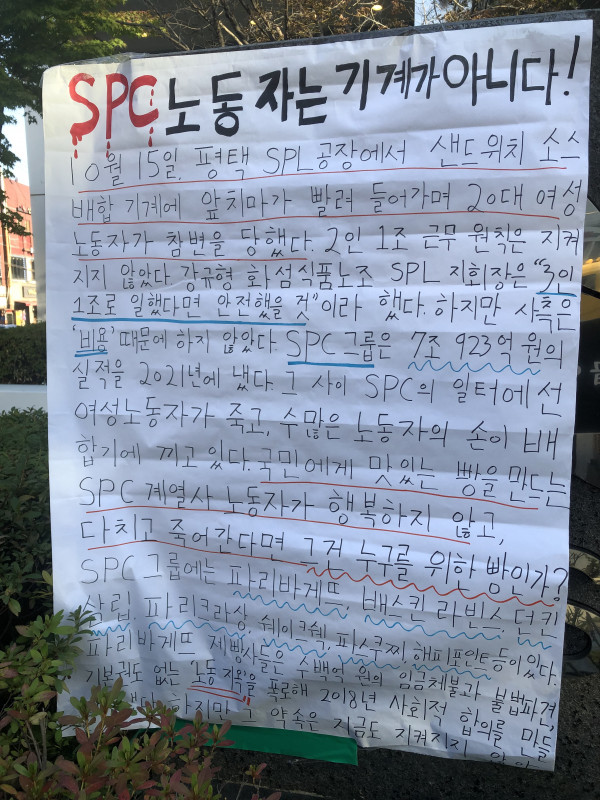 SPC 노동자는 기계가 아니다!
10월 15일, 평택 SPL공장에서 샌드위치 소스
배합 기계에 앞치마가 빨려 들어가며 20대 여성
노동자가 참변을 당했다. 2인 1조 근무 원칙은 지켜
지지 않았다. 강규형 화섬식품노조 SPL 지회장은 "3인
1조로 일했다면 안전했을 것"이라 했다. 하지만 사측은
'비용' 때문에 하지 않았다. SPC그룹은 7조 923억 원의
실적을 2021년에 냈다. 그 사이 SPC의 일터에선
여성노동자가 죽고, 수많은 노동자의 손이 배
합기에 끼고 있다. 국민에게 맛있는 빵을 만드는
SPC 계열사 노동자가 행복하지 않고,
다치고 죽어간다면 그건 누구를 위한 빵인가?
SPC그룹에는 파리바게뜨, 배스킨 라빈스, 던킨
삼립, 파리크라상, 쉐이크쉑, 파스쿠찌, 해피포인트 등이 있다.
파리바게뜨 제빵사들은 수백억 원의 임금체불과 불법파견,
기본권도 없는 '노동지옥'을 폭로해 2018년 사회적 합의를 만들
하지만 그 약속은 지금도 지켜지지